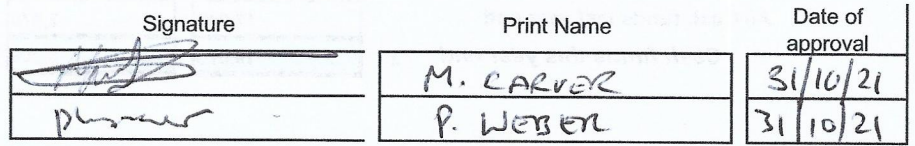 Signature Print Name Date of approval
M. CARVER 31/10/21
P. WEBER 31/10/21